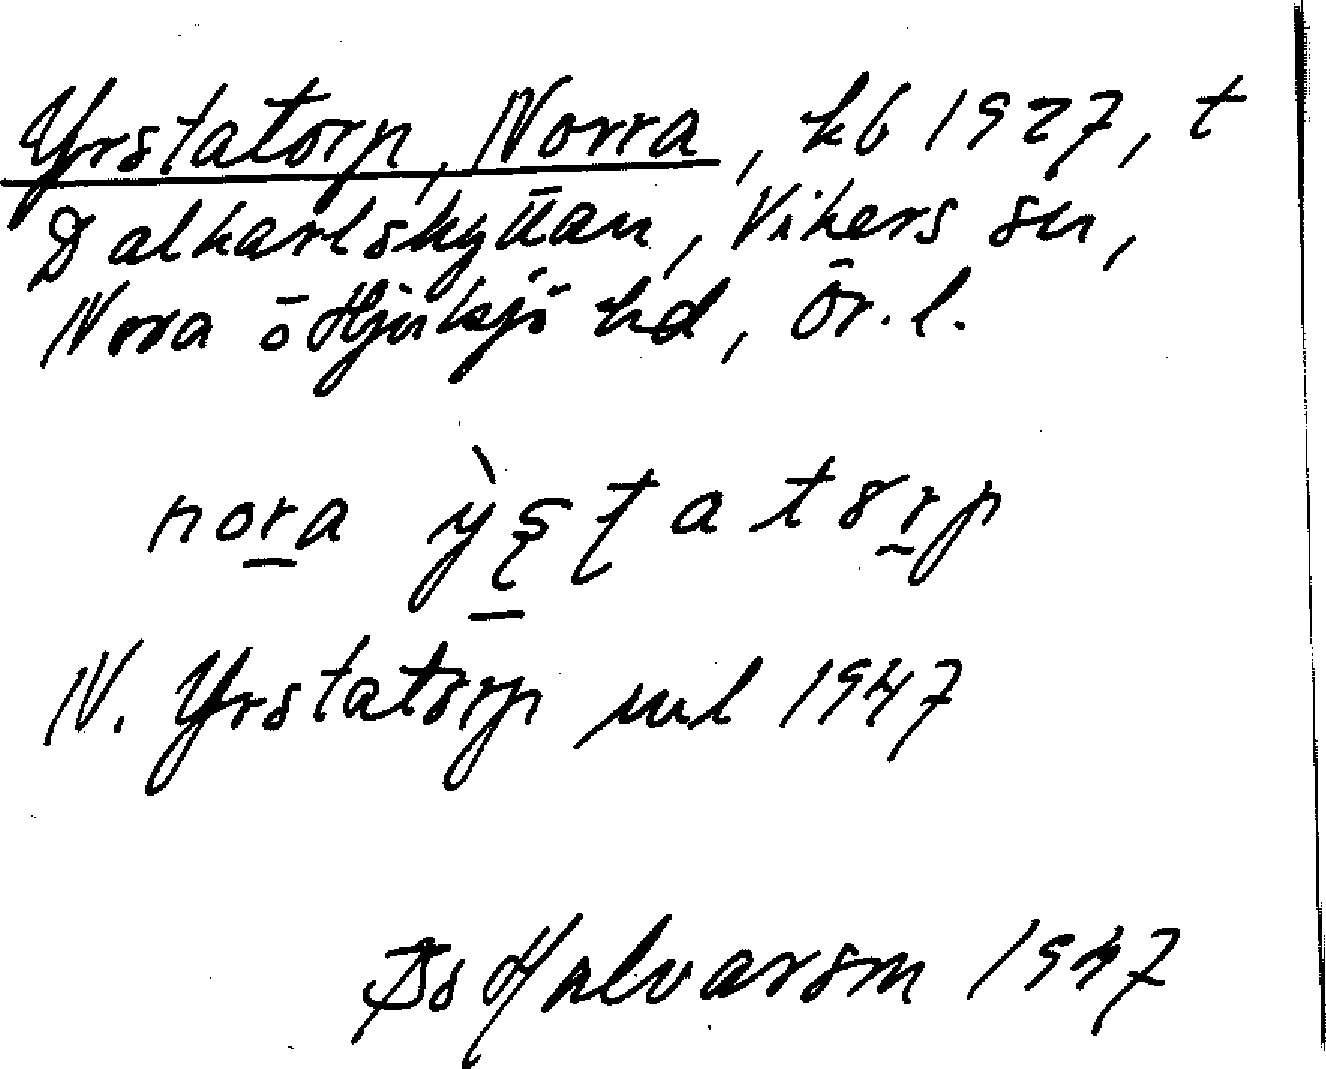 Yrstatorp, Norra, kb 1927, t
Dalkarlshyttan, Vikers sn,
Nora o Hjulsjö hd, Ör. l.
nora
N. Yrstatorp uul 1947
Halvarson 1947